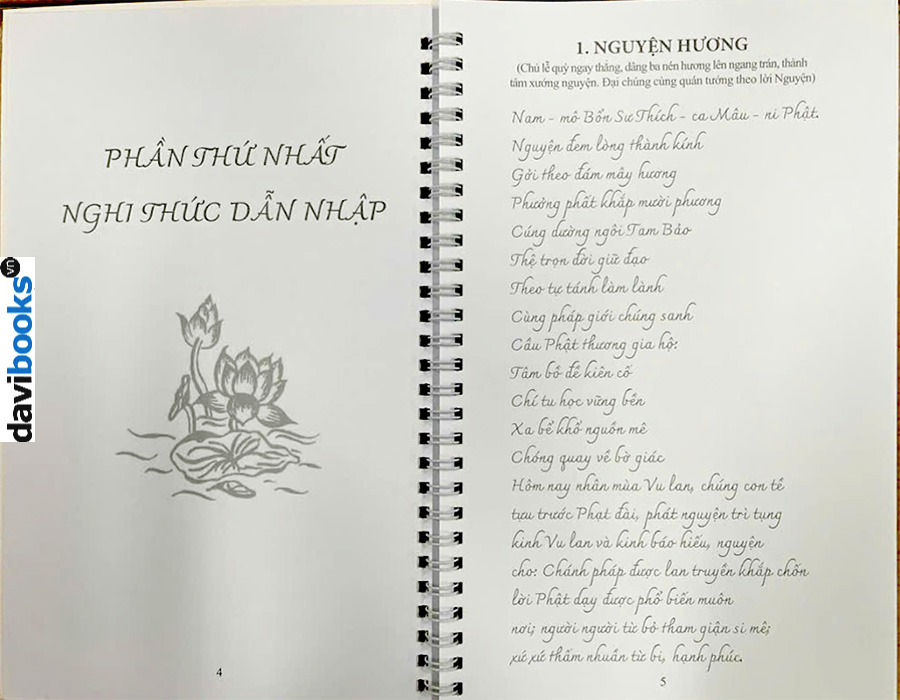 PHẦN THỨ NHẤT
NGHI THỨC DẪN NHẬP
davibooks
vn
4
1. NGUYỆN HƯƠNG
(Chủ lễ quỳ ngay thẳng, dâng ba nén hương lên ngang trán, thành
tâm xướng nguyện. Đại chúng cùng quán tưởng theo lời Nguyện)
Nam - mô Bổn Sư Thích - ca Mâu - ni Phật.
Nguyện đem lòng thành kính
Gởi theo đám mây hương
Phưởng phất khắp mười phương
Cúng dường ngôi Tam Bảo
Thệ trọn đời giữ đạo
Theo tự tánh làm lành
Cùng pháp giới chúng sanh
Cầu Phật thương gia hộ:
Tâm bồ đề kiên cố
Chí tu học vững bền
Xa bể khổ nguồn mê
Chóng quay về bờ giác
Hôm nay nhân mùa Vu lan, chúng con tề
tựu trước Phật đài, phát nguyện trì tụng
kinh Vu lan và kinh báo hiếu, nguyện
cho: Chánh pháp được lan truyền khắp chốn
lời Phật dạy được phổ biến muôn
nơi; người người từ bỏ tham giận si mê;
xứ xứ thấm nhuần từ bi, hạnh phúc.
5